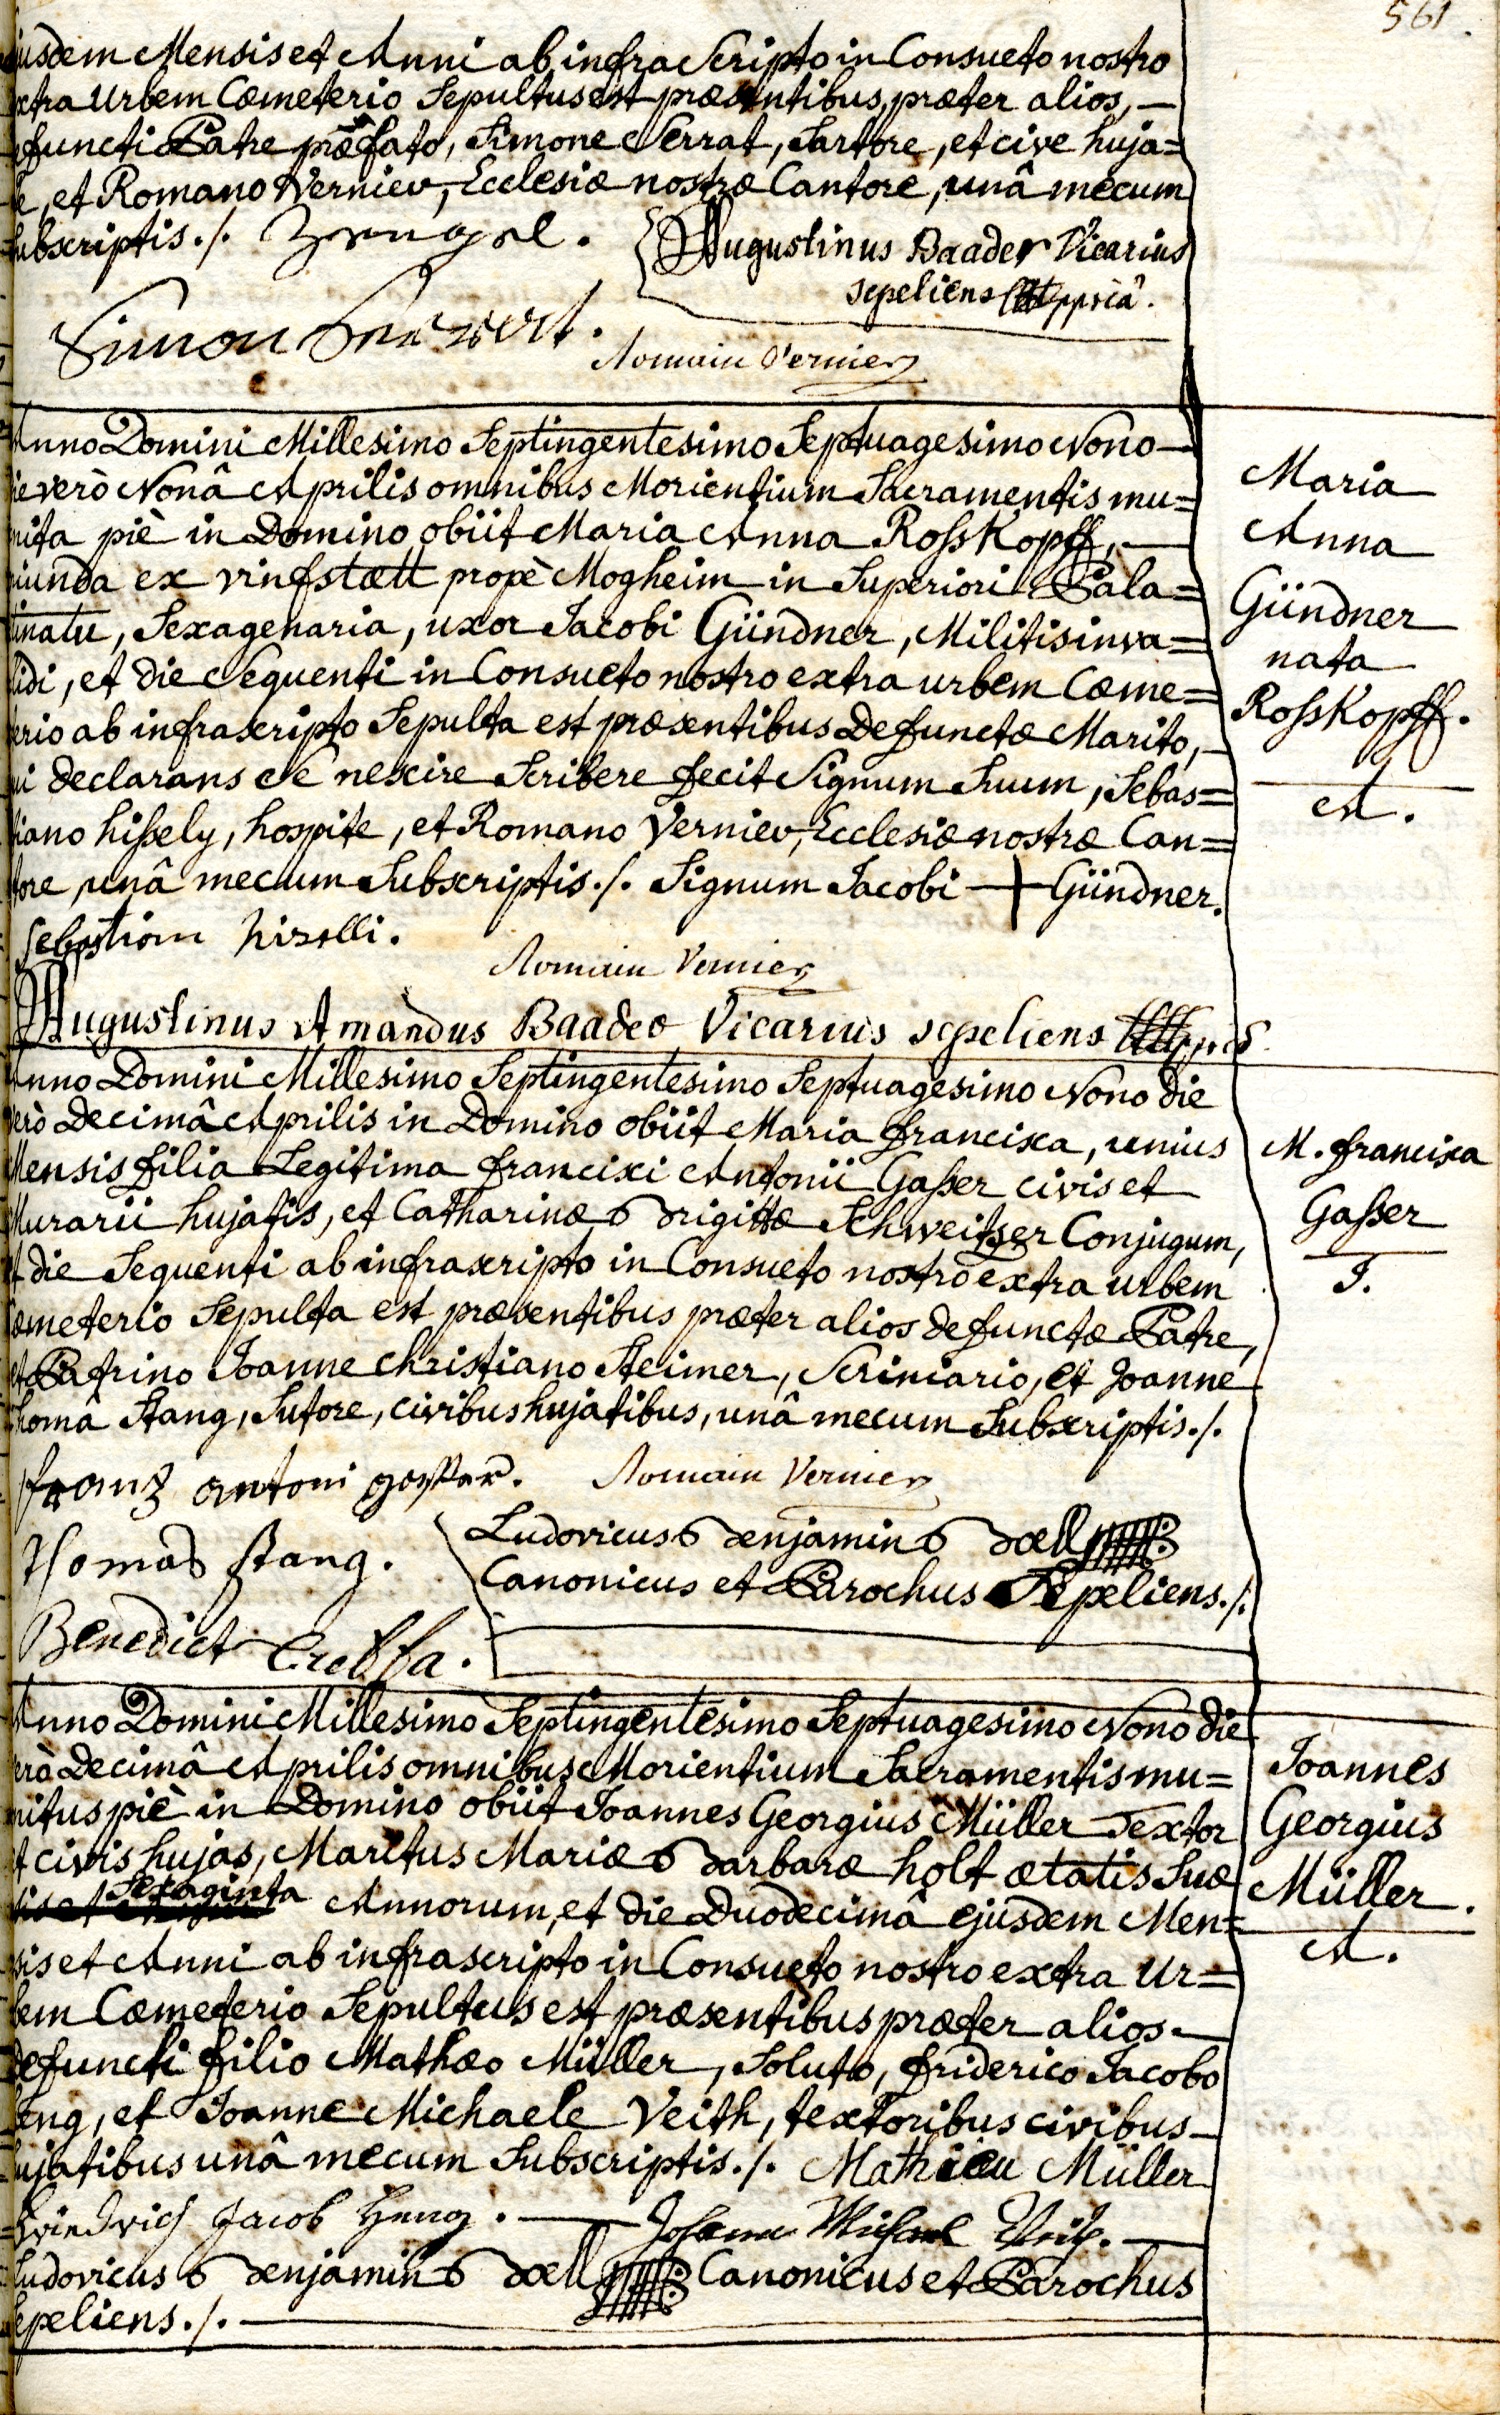 561.
ejusdem Mensis et Anni ab infra Scripto in Consueto nostro
extra Urbem Cœmeterio Sepultus est præsentibus, præter alios, —
defuncti Patre præfato, Simone Serrat, Sartore, et cive huja=
te, et Romano Vernier, Ecclesiæ nostræ Cantore, unâ mecum
subscriptis ./.
Augustinus Baader Vicarius
sepeliens
Simon
Romain Vernier
Anno Domini Millesimo Septingentesimo Septuagesimo Nono —
die verò Nonâ Aprilis omnibus Morientium Sacramentis mu=
nita piè in Domino obiit Maria Anna Rosskopff, —
oriunda ex vinfstætt propè Mogheim in Superiori Pala=
tinatu, Sexagenaria, uxor Jacobi Gündner, Militis inva=
lidi, et die Sequenti in Consueto nostro extra urbem Cœme=
terio ab infrascripto Sepulta est præsentibus Defunctæ Marito, —
qui declarans se nescire Scribere fecit Signum Suum, Sebas=
tiano hissely, hospite, et Romano Vernier, Ecclesiæ nostræ Can=
tore, unâ mecum Subscriptis ./. Signum Jacobi + Gündner.
Maria
Anna
Gündner
nata
Rosskopff.
A.
Sebastian hirselli.
Romain Vernier
Augustinus Amandus Baader Vicarius sepeliens
Anno Domini Millesimo Septingentesimo Septuagesimo Nono die
verò Decimâ Aprilis in Domino obiit Maria francisca, unius
Mensis filia Legitima francisci Antonii Gasser civis et
Murarii hujatis, et Catharinæ Brigittæ Schweitzer Conjugum,
et die Sequenti ab infrascripto in Consueto nostro extra urbem
Cœmeterio Sepulta est præsentibus præter alios defunctæ Patre,
et Patrino Joanne Christiano Steimer, Scriniario, et Joanne
Thomâ Stang, Sutore, civibus hujatibus, unâ mecum Subscriptis ./.
M. francisca
Gasser
I.
franz antoni gasser. Romain Vernier
Thomas Stang.
Ludovicus Benjamin Doell
Canonicus et Parochus Sepeliens ./.
Benedict
Anno Domini Millesimo Septingentesimo Septuagesimo Nono die
verò Decimâ Aprilis omnibus Morientium Sacramentis mu=
nitus piè in Domino obiit Joannes Georgius Müller Textor
et civis hujas, Maritus Mariæ Barbaræ holt ætatis Suæ
Sexaginta Annorum, et die Duodecimâ ejusdem Men=
sis et Anni ab infrascripto in Consueto nostro extra Ur=
bem Cœmeterio Sepultus est præsentibus præter alios —
defuncti filio Mathæo Müller, Soluto, friderico Jacobo
heng, et Joanne Michaele Veith, textoribus civibus —
hujatibus unâ mecum Subscriptis ./. Mathieu Müller
Joannes
Georgius
Müller.
A.
Friedrich Jacob Heng. — Johann Michael Veith. —
Ludovicus Benjamin Doell Canonicus et Parochus
Sepeliens ./.